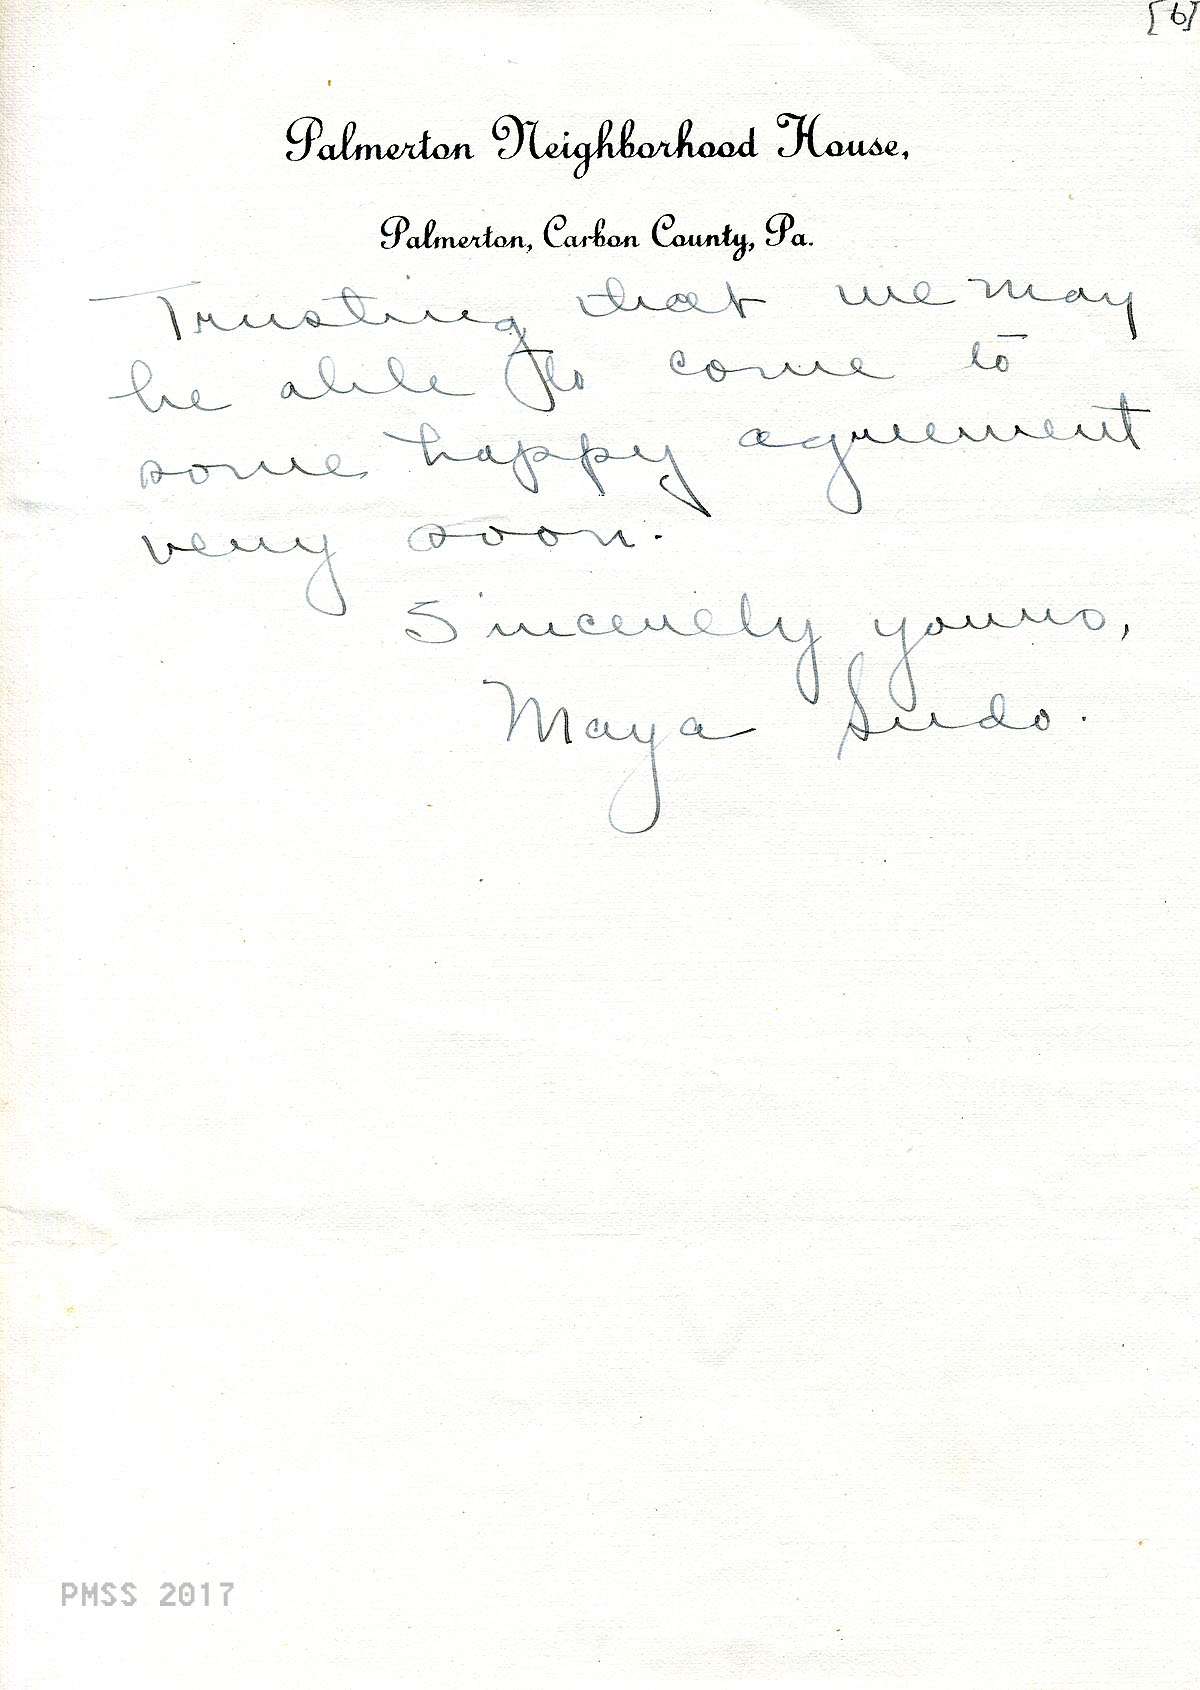 [6]
Palmerton Neighborhood House,
Palmerton, Carbon County, Pa.
Trusting that we may
be able to come to
some happy agreement
very soon.
Sincerely yours,
Maya Sudo.
PMSS 2017